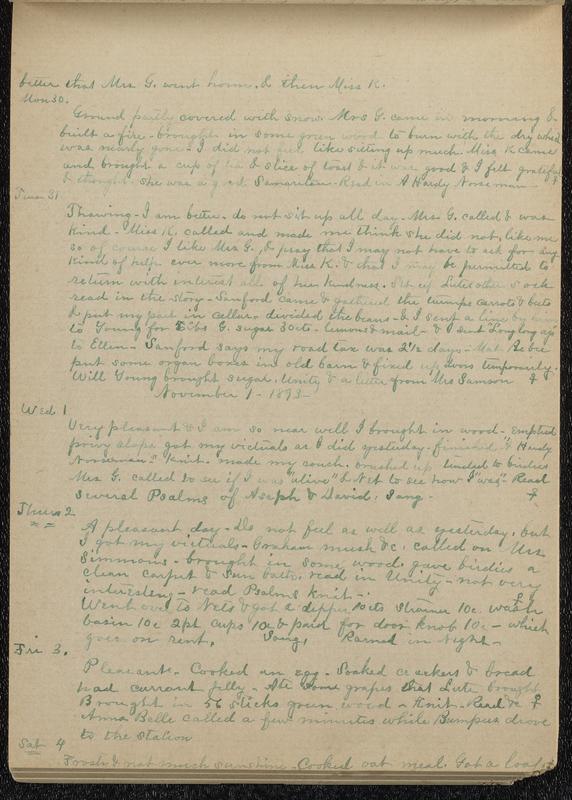 better that Mrs G. went home, & then Miss K.
Mon 30.
Ground partly covered with snow. Mrs G. came in morning &
built a fire - brought in some green wood to burn with the dry which
was nearly gone - I did not feel like sitting up much. Miss K came
and brought a cup of tea & slice of toast & it was good & I felt grateful
& thought she was a good Samaritan - Read in A Hardy Norseman
Tues 31
Thawing - I am better, do not sit up all day - Mrs G. called & was
kind - Miss K. called and made me think she did not like me
so of course I like Mrs G., & pray that I may not have to ask for any
kind of help ever more from Miss K. & that I may be permitted to
return with interest all of her kindness. Set up Lutes other sock
read in the story - Sanford came & gathered the turnips carrots & beets
& put my part in cellar - divided the beans - & I sent a line by him
to Young for 5 lbs G. sugar 30cts - lemons & mail - & I sent Long long ago
to Ellen - Sanford says my road tax was 2 1/2 days -
put some organ boxes in old barn & fixed up doors temporarily.
Will Young brought sugar, Unity & a letter from Mrs Samson
November 1 - 1893 -
Wed 1
Very pleasant & I am so near well I brought in wood - emptied
privy slops got my victuals as I did yesterday - finished "A Hardy
Norseman" - Knit - made my couch, brushed up tended to birdies
Mrs G. called to see if I was "alive" & Net to see how I "was" Read
several Psalms of Asaph & David: Sang -
Thurs 2
A pleasant day - Do not feel as well as yesterday, but
I got my victuals - Graham mush &c. called on Mrs
Simmons - brought in some wood, gave birdies a
clean carpet & Sun bath, read in Unity - not very
interesting - read Psalms knit -
Went over to Nets & got a dipper 10cts Strainer 10c wash
basin 10c 2pt cups 10c & paid for door knob 10c - which
goes on rent, Sang, Rained in Night -
Fri 3.
Pleasant - Cooked an egg - Soaked crackers & bread
had currant jelly - Ate some grapes that Lute brought
Brought in 56 Sticks green wood - Knit - Read &c
Anna Belle called a few minutes while Bumpus drove
to the Station
Sat 4
Frosty & not much sunshine - Cooked oat meal. Got a loaf